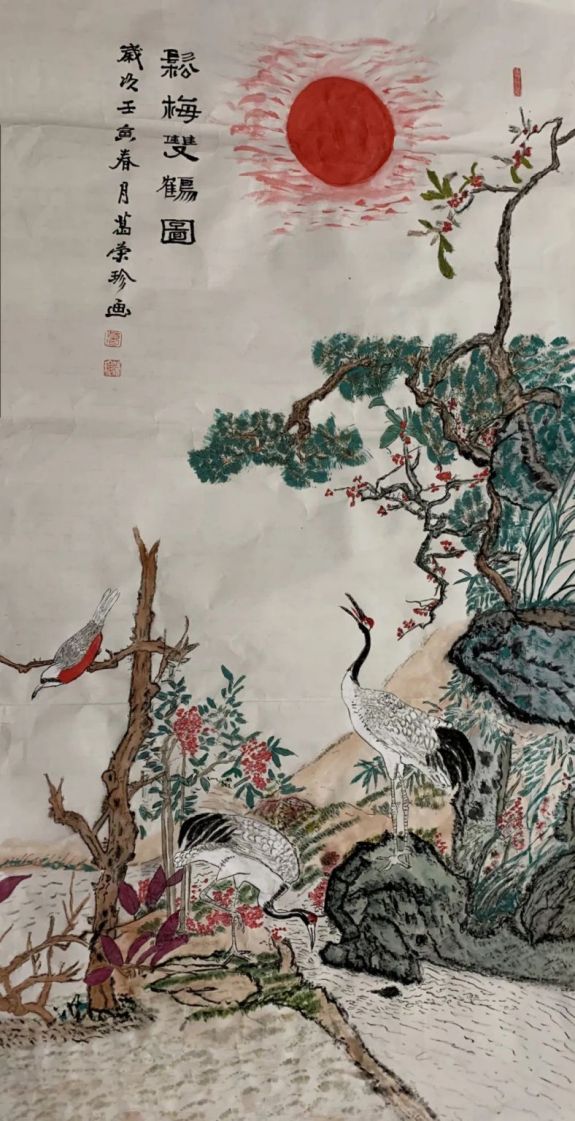 鬆梅雙鶴圖
歲次壬寅春月葛榮珍画